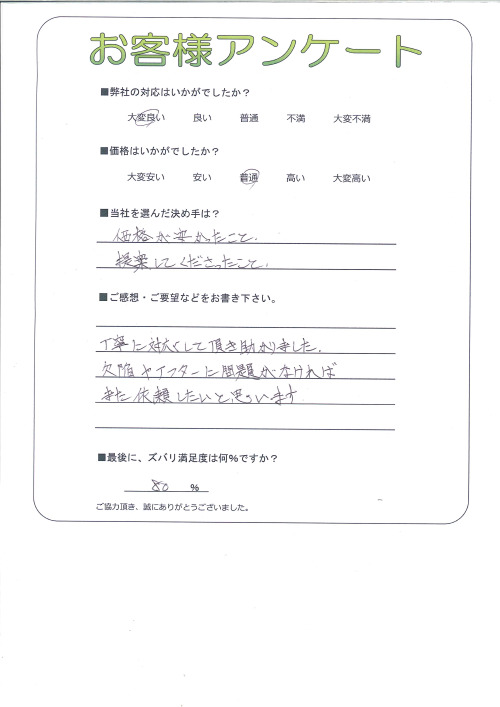 お客様アンケート
■弊社の対応はいかがでしたか?
大変良い 良い 普通 不満 大変不満
■価格はいかがでしたか?
大変安い 安い 普通 高い 大変高い
■当社を選んだ決め手は?
価格が安かったこと.
提案してくださったこと.
■ご感想・ご要望などをお書き下さい。
丁寧に対応して頂き助かりました.
欠陥やアフターに問題がなければ
また依頼したいと思います
■最後に、ズバリ満足度は何%ですか?
80 %
ご協力頂き、誠にありがとうございました。